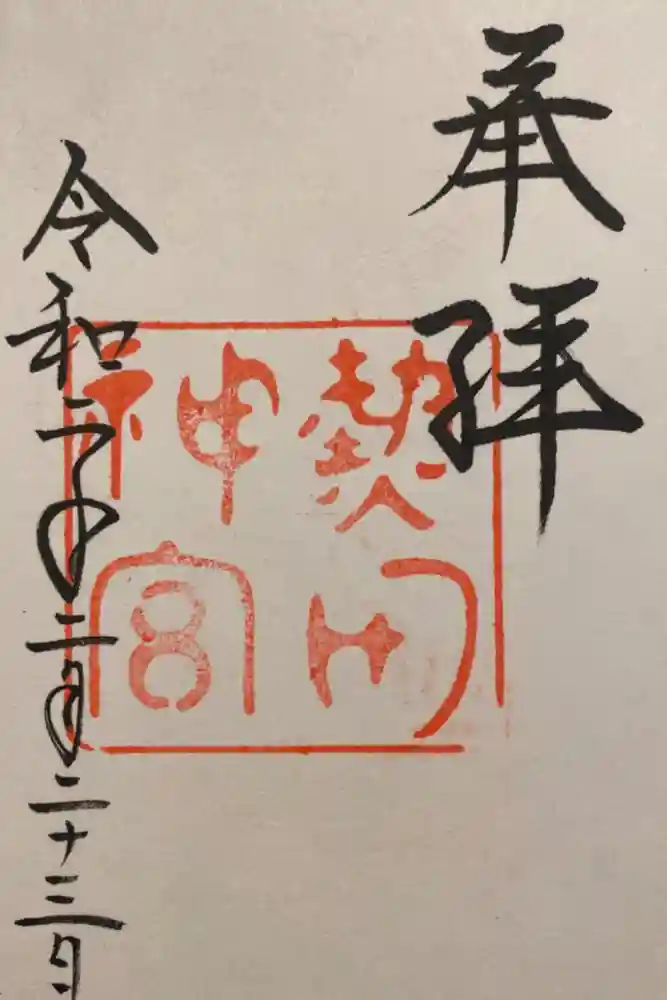 奉拝
熱田
神宮
令和二年二月二十三日